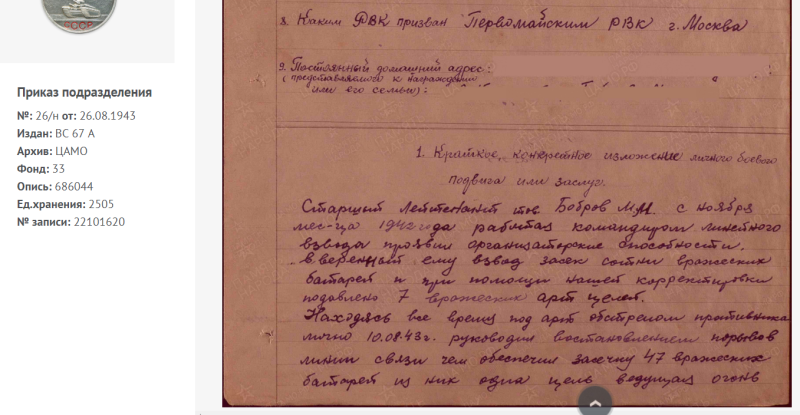 СССР
Приказ подразделения
№: 26/н от: 26.08.1943
Издан: ВС 67 А
Архив: ЦАМО
Фонд: 33
Опись: 686044
Ед.хранения: 2505
№ записи: 22101620
8. Каким РВК призван Первомайским РВК г. Москва
9. Постоянный домашний адрес:
(представляемого к награждению
или его семьи):
1. Краткое, конкретное изложение личного боевого
подвига или заслуг.
Старший Лейтенант тов. Бобров М.М. с ноября
мес-ца 1942 года работая командиром линейного
взвода проявил организаторские способности.
вверенный ему взвод засек сотни вражеских
батарей и при помощи нашей корректировки
подавлено 7 вражеских арт целей.
Находясь все время под арт обстрелом противника
лично 10.08.43г. руководил восстановлением порывов
линии связи чем обеспечил засечку 47 вражеских
батарей из них одна цель ведущая огонь